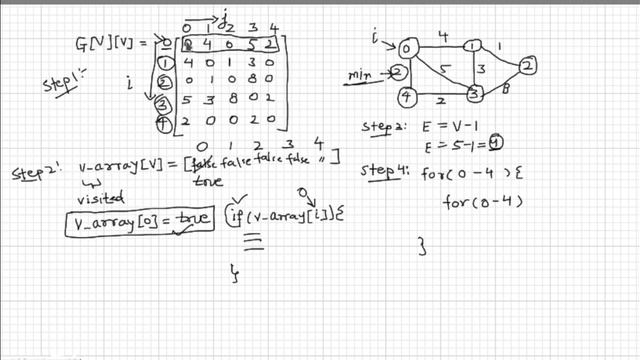 j
0 1 2 3 4
G[V][V] = 0 0 4 0 5 2
Step1:
i
1 4 0 1 3 0
2 0 1 0 8 0
3 5 3 8 0 2
4 2 0 0 2 0
i 0 4 1 1 2
min 2 5 3 8
4 2 3
Step3: E = V-1
E = 5-1 = 4
0 1 2 3 4
Step2: v_array[V] = [false false false false "]
true
visited
v_array[0] = true
0
if(v_array[i]){
}
Step4: for(0-4){
for(0-4)
}